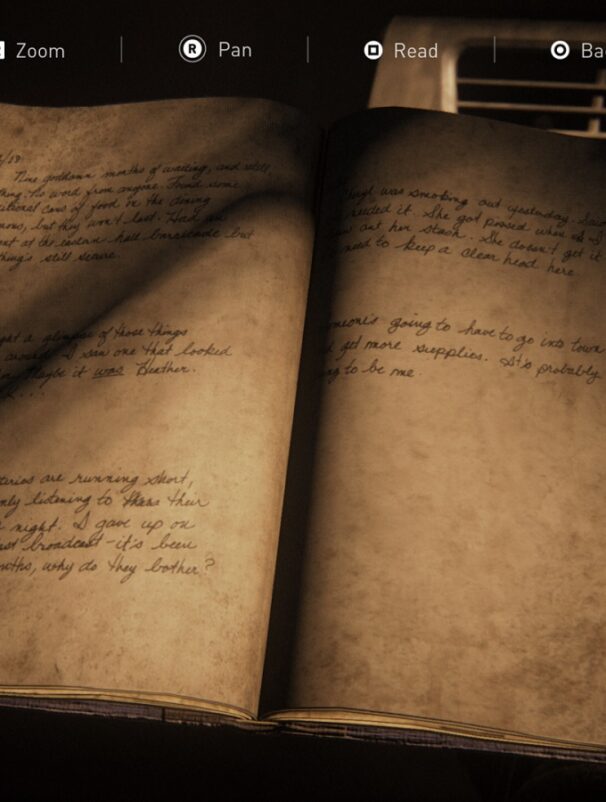 Zoom
R Pan
Read
Ba
/18
Nine goddamn months of waiting, and still
thing. No word from anyone. Found some
itional cans of food in the dining
nows, but they won't last. Had an
ent at the eastern hall barricade but
thing's still secure.
ght a glimpse of those things
around. I saw one that looked
Maybe it was Heather.
tteries are running short,
only listening to their
night. I gave up on
last broadcast - it's been
onths, why do they bother?
was smoking out yesterday. Said
needed it. She got pissed when I
out her stash. She doesn't get it
need to keep a clear head here.
omeone's going to have to go into town
d get more supplies. It's probably
ng to be me.